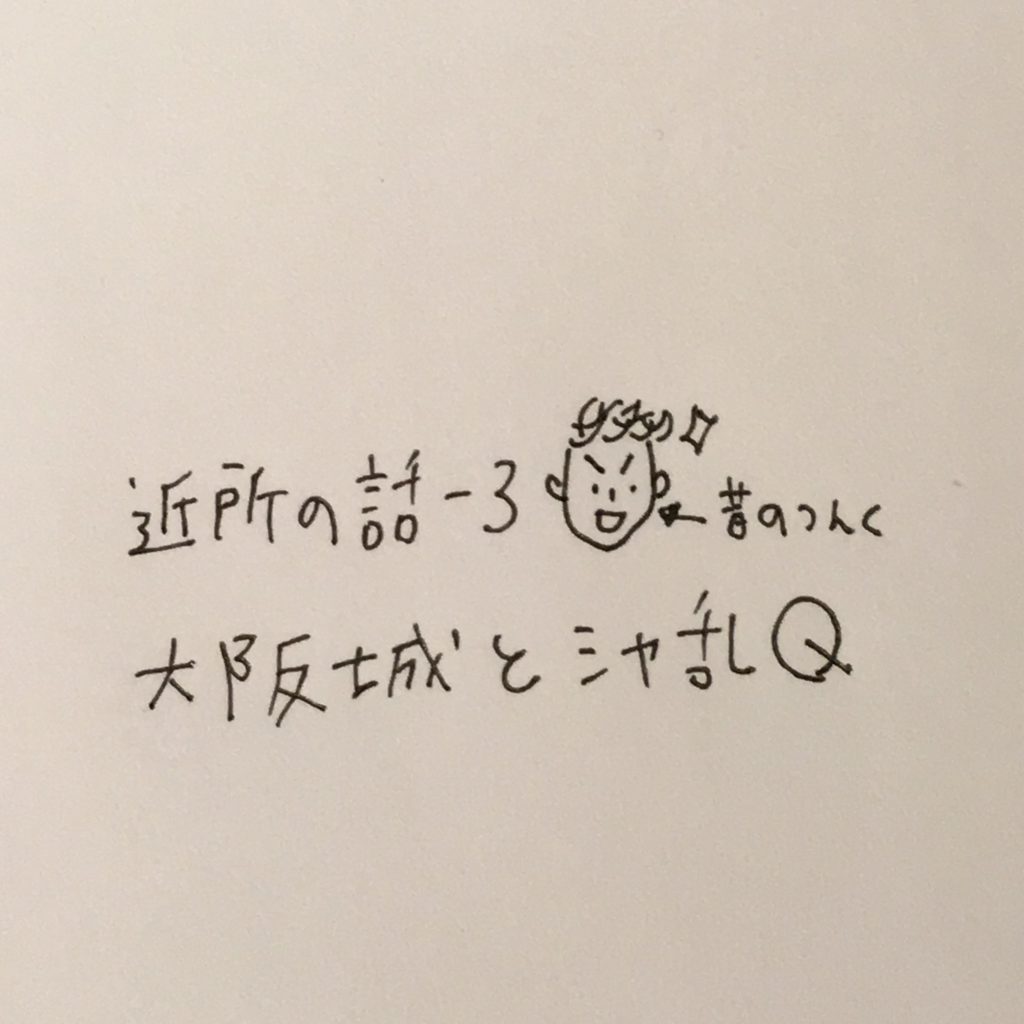 近所の話-3 ←昔のつんく
大阪城とシャ乱Q